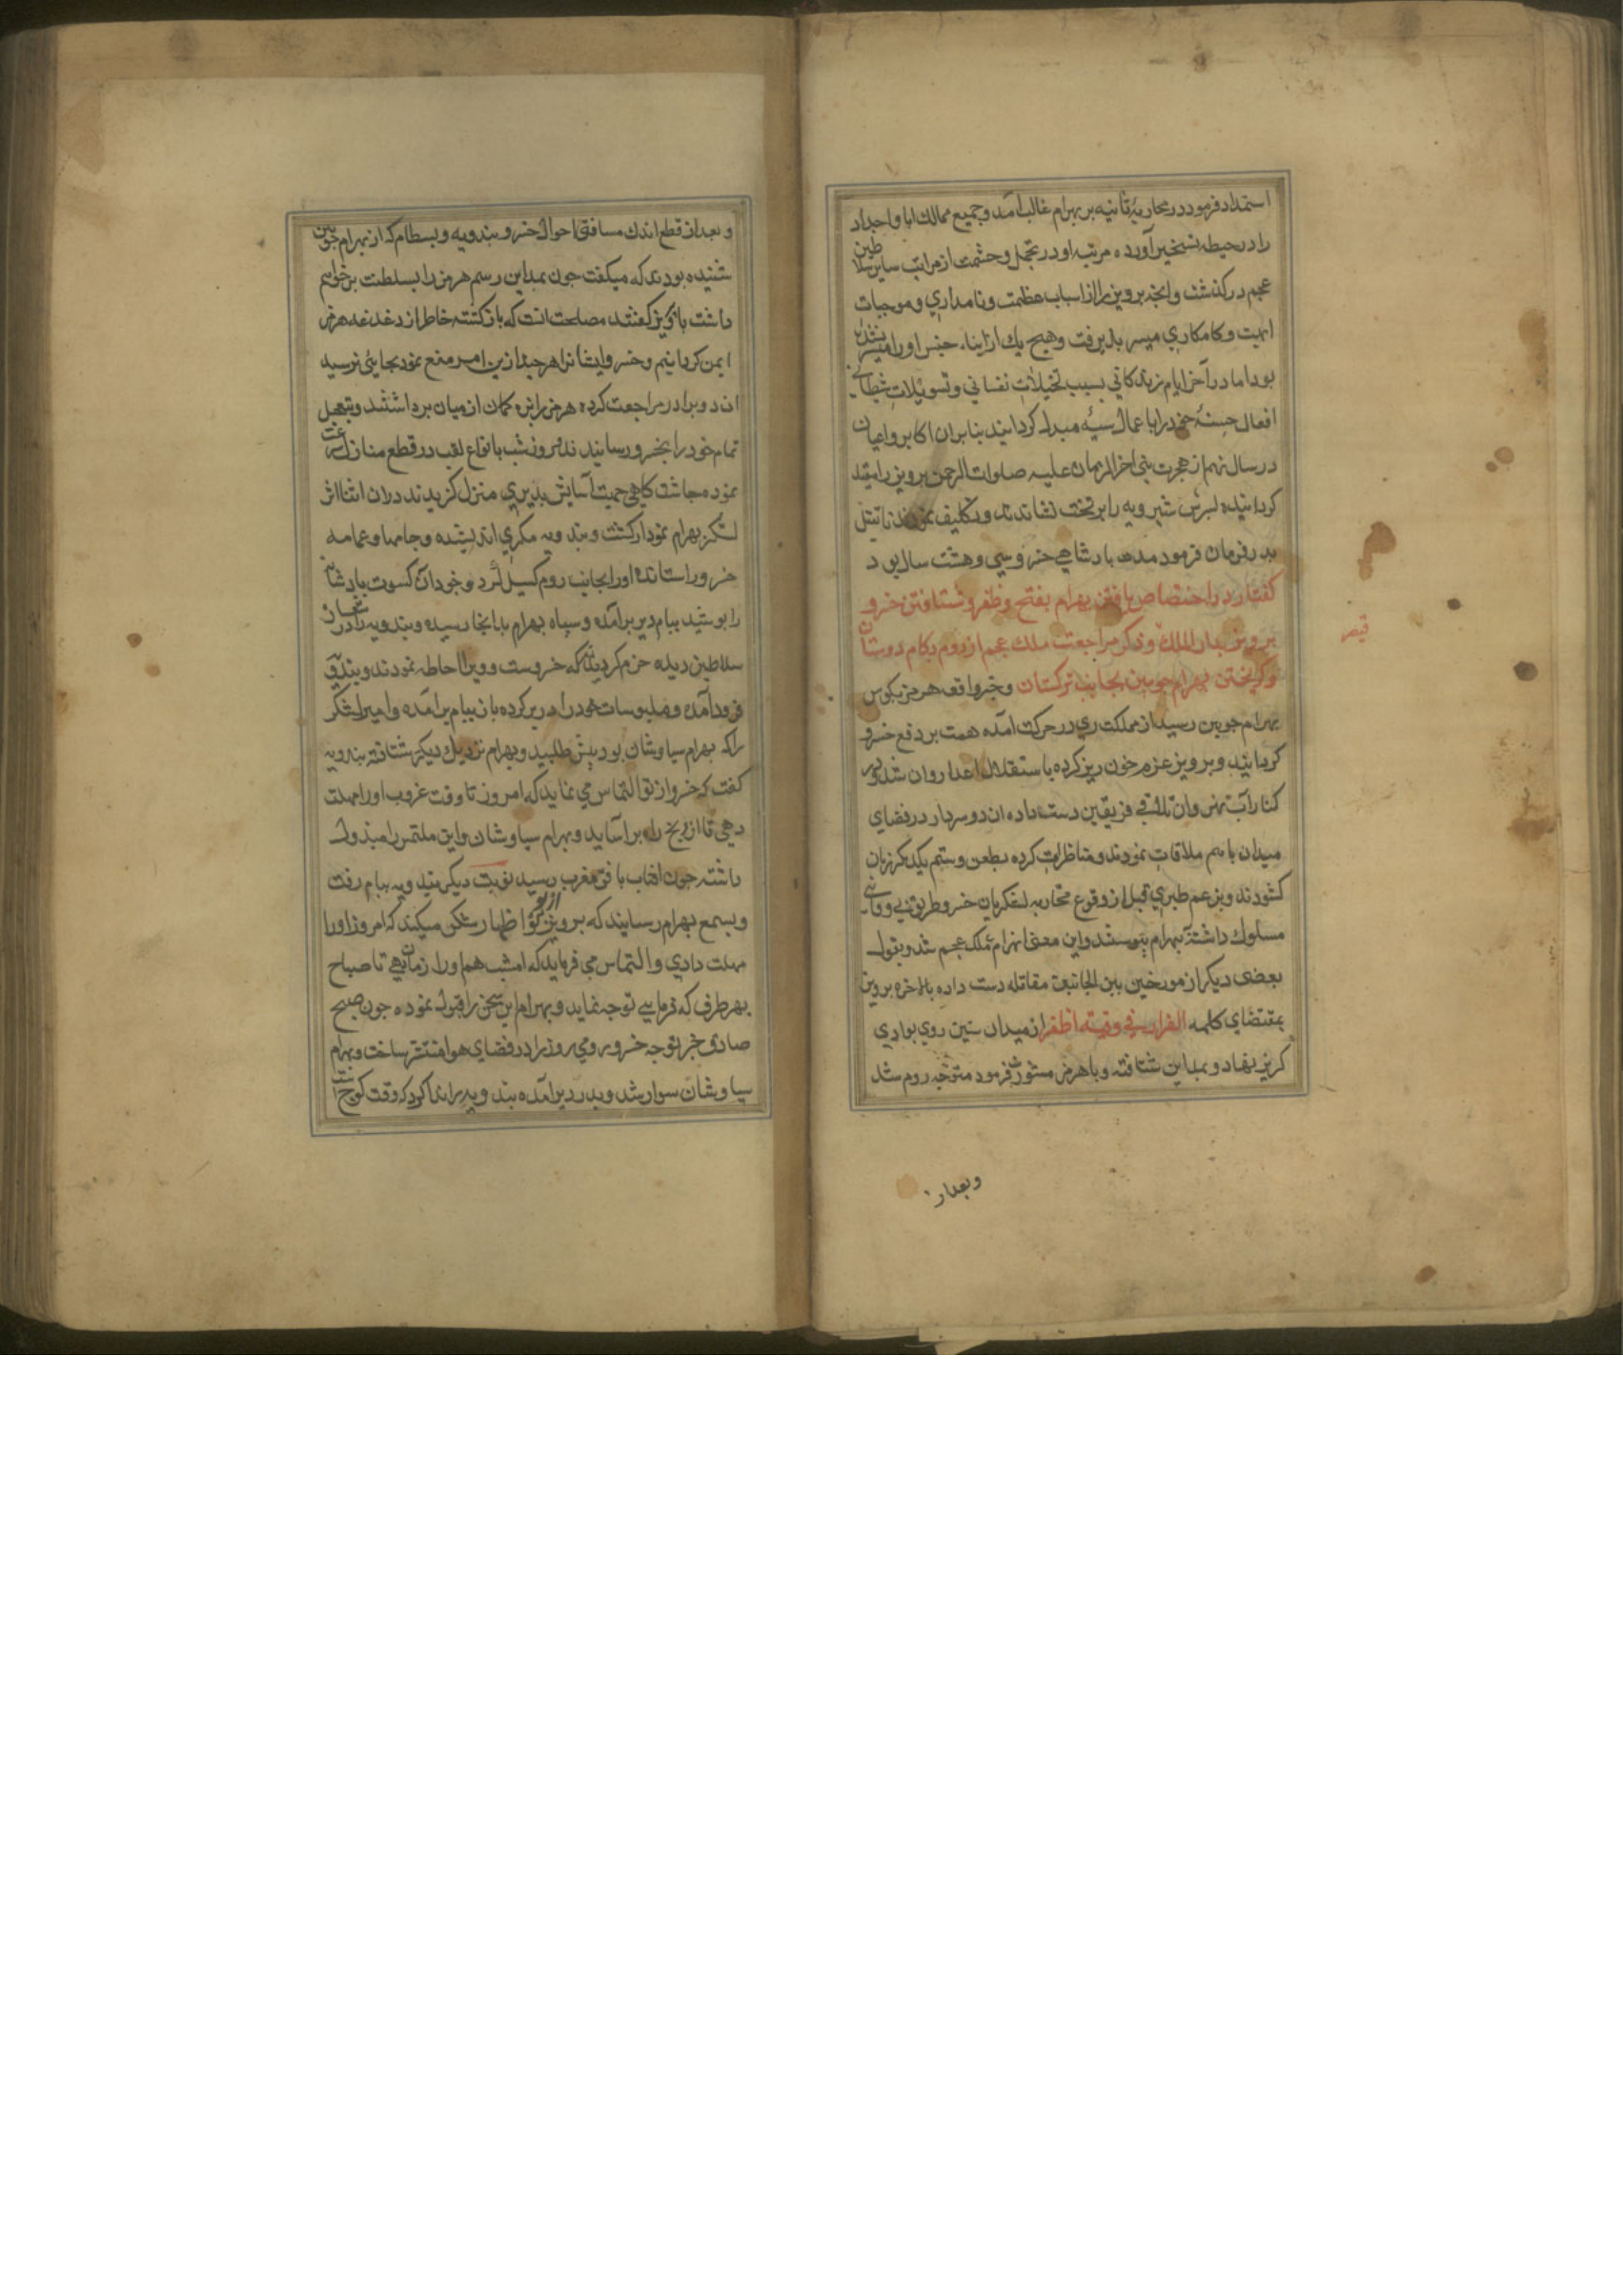 استمداد فرمود در محاربهٔ ثانیه بر بهرام غالب آمد و جمیع ممالك ابا و اجداد
را در حیطه تسخیر آورده مرتبه او در تجمل و حشمت از مراتب سایر سلاطین
عجم در کذشت و انجه برویز را از اسباب عظمت و نامداري و موجبات
ابهت و کامکاري میسر بذیرفت و هیچ یك از ابنا، جنس او را میسر نشده
بود اما در آخر ایام زندکانی بسبب تخیلات نفسانی و تسویلات شیطانی
افعال حسنهٔ خود را با عمال سیٔه مبدل کردانید بنابران اکابر و اعیان
در سال نهم از هجرت نبی اخر الزمان علیه صلوات الرحمن برویز را مقید
کردانیده بسرش شیرویه را بر تخت نشاندند و تکلیف نمودند تا بقتل
بدر فرمان فرمود مدت بادشاهی خسرو سي و هشت سال بود
کفتار در اختصاص یافتن بهرام بفتح و ظفر و شتافتن خسرو
برویز بدار الملك و ذکر مراجعت ملك عجم از روم بکام دوستان
و کریختن بهرام جوبین بجانب ترکستان و خبر واقعه هرمز بکوش
قیصر
بهرام جوبین رسید از مملکت ري در حرکت آمده همت بر دفع خسرو
کردانید و برویز عزم خون ریز کرده باستقلال اعدا روان شد و بر
کنار آب نهروان تلاقی فریقین دست داده ان دو سردار در فضای
میدان باهم ملاقات نمودند و مناظرات کرده بطعن و ستم یکدیکر زبان
کشودند و بزعم طبري قبل از وقوع محاربه لشکریان خسرو طریق بی وفائی
مسلوك داشته ببهرام بیوستند و این معنی انهزام ملك عجم شد و بقول
بعضی دیکر از مورخین بین الجانبین مقاتله دست داده بالاخره برویز
بمقتضای کلمه الفرار فی وقته اظفر از میدان ستیز روي بوادي
کریز نهاد و بمداین شتافته و با هرمز مشورت فرمود متوجه روم شد
وبعداز
و بعد از قطع اندك مسافتی احوال خسرو بندویه و بسطام که از بهرام جوبین
شنیده بودند که میکفت جون بمداین رسم هرمز را بسلطنت بر خواهم
داشت با برویز کفتند مصلحت انست که باز کشته خاطر از دغدغه هرمز
ایمن کردانیم و خسرو ایشانرا هر جند ازین امر منع نمود بجایئی نرسید
ان دو برادر مراجعت کرده هرمز را بزه کمان از میان برداشتند و بتعجیل
تمام خود را بخسرو رسانیدند سه روز شب بانواع تعب در قطع منازل سرعت
نموده جاشت کاهی جهت آسایش بدیري منزل کزیدند دران اثنا اثر
لشکر بهرام نمودار کشت و بندویه مکري اندیشیده و جامها و عمامه
خسرو را ستانده او را بجانب روم کسیل کرد و خود آن کسوت بادشاهی
را بوشید ببام دیر برآمد و سپاه بهرام بدانجا رسیده و بندویه را در زي
سلاطین دیده جزم کردند که خسروست و ویرا احاطه نمودند و بندویه
فرود آمده و ملبوسات خود را در بر کرده باز ببام برآمده و امیر لشکر
را که بهرام سیاوشان بود بیش طلبید و بهرام نزدیك دیر شتافته بندویه
کفت که خسرو از تو التماس می نماید که امروز تا وقت غروب او را مهلت
دهی تا از رنج راه بر آساید و بهرام سیاوشان و این ملتمس را مبذول
داشته جون افتاب بافق مغرب رسید نوبت دیکر بندویه ببام رفت
و بسمع بهرام رسانید که برویز از تو اظهار شکر میکند که امروز او را
مهلت دادي و التماس می فرماید که امشب هم او را زمان دهی تا صباح
بهر طرف که فرمایي توجه نماید و بهرام این سخن را قبول نموده جون صبح
صادق خبر توجه خسرو رومي روز را در فضاي هوا منتشر ساخت و بهرام
سیاوشان سوار شد و بدر دیر آمده بندویه را ندا کرد که وقت کوج است